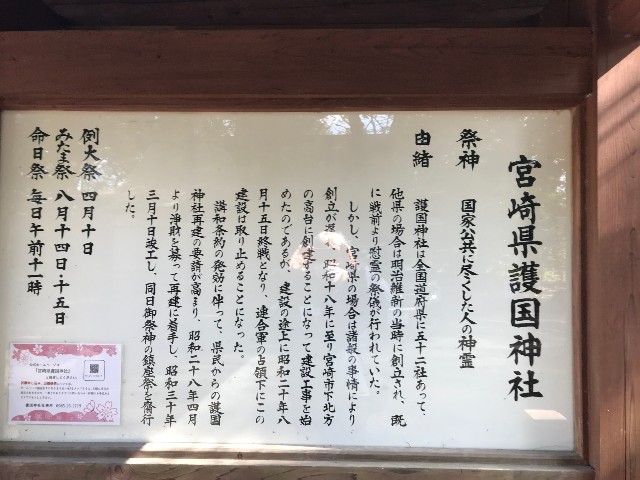 宮崎県護国神社
祭神　国家公共に尽くした人の神霊
由緒
護国神社は全国道府県に五十二社あって、
他県の場合は明治維新の当時に創立され、既
に戦前より慰霊の祭儀が行われていた。
しかし、宮崎県の場合は諸般の事情により
創立が遅れ、昭和十八年に至り宮崎市下北方
の高台に創建することになって建設工事を始
めたのであるが、建設の途上に昭和二十年八
月十五日終戦となり、連合軍の占領下にこの
建設は取り止めることになった。
講和条約の発効に伴って、県民からの護国
神社再建の要請が高まり、昭和二十八年四月
より浄財を募って再建に着手し、昭和三十年
三月十日竣工し、同日御祭神の鎮座祭を斎行
した。
例大祭　四月十日
みたま祭　八月十四日・十五日
命日祭　毎日午前十一時
「宮崎県護国神社」